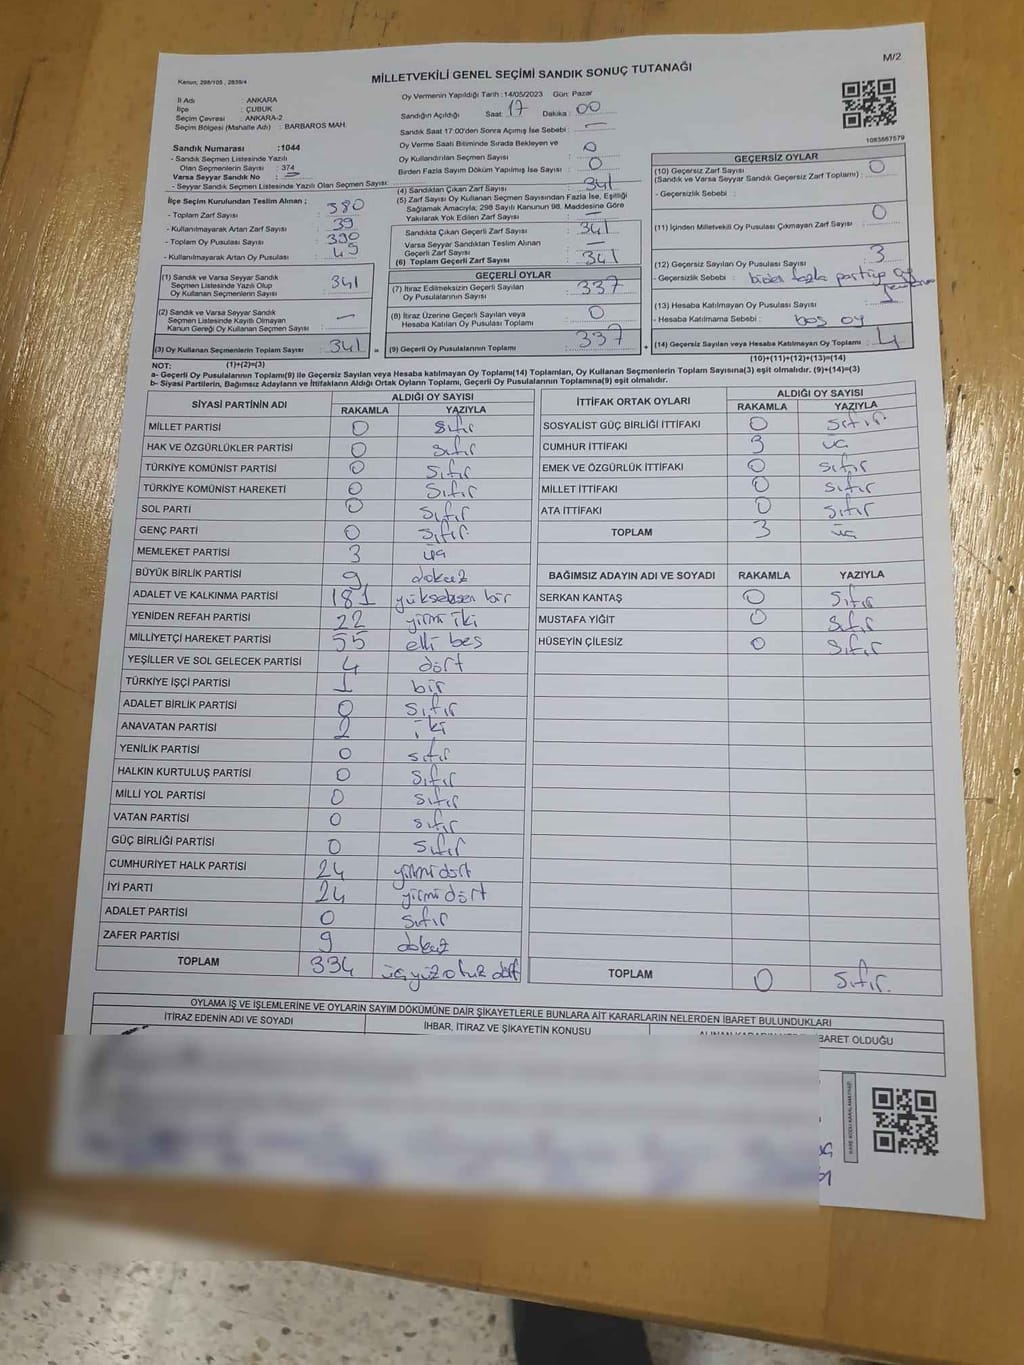 M/2
Kanun, 298/105 , 2839/4
MİLLETVEKİLİ GENEL SEÇİMİ SANDIK SONUÇ TUTANAĞI
İl Adı : ANKARA
İlçe : ÇUBUK
Seçim Çevresi : ANKARA-2
Seçim Bölgesi (Mahalle Adı) : BARBAROS MAH.
Oy Vermenin Yapıldığı Tarih : 14/05/2023 Gün: Pazar
Sandığın Açıldığı Saat : 17 Dakika : 00
Sandık Saat 17:00'den Sonra Açımış İse Sebebi : —
Oy Verme Saati Bitiminde Sırada Bekleyen ve
Oy Kullandırılan Seçmen Sayısı : 0
Birden Fazla Sayım Döküm Yapılmış İse Sayısı : 0
1083667579
Sandık Numarası :1044
- Sandık Seçmen Listesinde Yazılı
Olan Seçmenlerin Sayısı : 374
Varsa Seyyar Sandık No :
- Seyyar Sandık Seçmen Listesinde Yazılı Olan Seçmen Sayısı:
İlçe Seçim Kurulundan Teslim Alınan ;
- Toplam Zarf Sayısı : 380
- Kullanılmayarak Artan Zarf Sayısı : 39
- Toplam Oy Pusulası Sayısı : 390
- Kullanılmayarak Artan Oy Pusulası : 49
(1) Sandık ve Varsa Seyyar Sandık
Seçmen Listesinde Yazılı Olup
Oy Kullanan Seçmenlerin Sayısı : 341
(2) Sandık ve Varsa Seyyar Sandık
Seçmen Listesinde Kayıtlı Olmayan
Kanun Gereği Oy Kullanan Seçmen Sayısı : —
(3) Oy Kullanan Seçmenlerin Toplam Sayısı : 341 =
(4) Sandıktan Çıkan Zarf Sayısı : 341
(5) Zarf Sayısı Oy Kullanan Seçmen Sayısından Fazla İse, Eşitliği
Sağlamak Amacıyla; 298 Sayılı Kanunun 98. Maddesine Göre
Yakılarak Yok Edilen Zarf Sayısı : —
Sandıkta Çıkan Geçerli Zarf Sayısı : 341
Varsa Seyyar Sandıktan Teslim Alınan
Geçerli Zarf Sayısı : —
(6) Toplam Geçerli Zarf Sayısı : 341
GEÇERLİ OYLAR
(7) İtiraz Edilmeksizin Geçerli Sayılan
Oy Pusulalarının Sayısı : 337
(8) İtiraz Üzerine Geçerli Sayılan veya
Hesaba Katılan Oy Pusulası Toplamı : 0
(9) Geçerli Oy Pusulalarının Toplamı : 337 +
GEÇERSİZ OYLAR
(10) Geçersiz Zarf Sayısı
(Sandık ve Varsa Seyyar Sandık Geçersiz Zarf Toplamı) : 0
- Geçersizlik Sebebi :
(11) İçinden Milletvekili Oy Pusulası Çıkmayan Zarf Sayısı : 0
(12) Geçersiz Sayılan Oy Pusulası Sayısı : 3
- Geçersizlik Sebebi : birden fazla partiye oy
(13) Hesaba Katılmayan Oy Pusulası Sayısı : 1
- Hesaba Katılmama Sebebi : boş oy
(14) Geçersiz Sayılan veya Hesaba Katılmayan Oy Toplamı : 4
NOT: (1)+(2)=(3) (10)+(11)+(12)+(13)=(14)
a- Geçerli Oy Pusulalarının Toplamı(9) ile Geçersiz Sayılan veya Hesaba katılmayan Oy Toplamı(14) Toplamları, Oy Kullanan Seçmenlerin Toplam Sayısına(3) eşit olmalıdır. (9)+(14)=(3)
b- Siyasi Partilerin, Bağımsız Adayların ve İttifakların Aldığı Ortak Oyların Toplamı, Geçerli Oy Pusulalarının Toplamına(9) eşit olmalıdır.
SİYASİ PARTİNİN ADI ALDIĞI OY SAYISI
RAKAMLA YAZIYLA
MİLLET PARTİSİ 0 sıfır
HAK VE ÖZGÜRLÜKLER PARTİSİ 0 sıfır
TÜRKİYE KOMÜNİST PARTİSİ 0 sıfır
TÜRKİYE KOMÜNİST HAREKETİ 0 sıfır
SOL PARTİ 0 sıfır
GENÇ PARTİ 0 sıfır
MEMLEKET PARTİSİ 3 üç
BÜYÜK BİRLİK PARTİSİ 9 dokuz
ADALET VE KALKINMA PARTİSİ 181 yükseksen bir
YENİDEN REFAH PARTİSİ 22 yirmi iki
MİLLİYETÇİ HAREKET PARTİSİ 55 elli beş
YEŞİLLER VE SOL GELECEK PARTİSİ 4 dört
TÜRKİYE İŞÇİ PARTİSİ 1 bir
ADALET BİRLİK PARTİSİ 0 sıfır
ANAVATAN PARTİSİ 2 iki
YENİLİK PARTİSİ 0 sıfır
HALKIN KURTULUŞ PARTİSİ 0 sıfır
MİLLİ YOL PARTİSİ 0 sıfır
VATAN PARTİSİ 0 sıfır
GÜÇ BİRLİĞİ PARTİSİ 0 sıfır
CUMHURİYET HALK PARTİSİ 24 yirmi dört
İYİ PARTİ 24 yirmi dört
ADALET PARTİSİ 0 sıfır
ZAFER PARTİSİ 9 dokuz
TOPLAM 334 üç yüz otuz dört
İTTİFAK ORTAK OYLARI ALDIĞI OY SAYISI
RAKAMLA YAZIYLA
SOSYALİST GÜÇ BİRLİĞİ İTTİFAKI 0 sıfır
CUMHUR İTTİFAKI 3 üç
EMEK VE ÖZGÜRLÜK İTTİFAKI 0 sıfır
MİLLET İTTİFAKI 0 sıfır
ATA İTTİFAKI 0 sıfır
TOPLAM 3 üç
BAĞIMSIZ ADAYIN ADI VE SOYADI RAKAMLA YAZIYLA
SERKAN KANTAŞ 0 sıfır
MUSTAFA YİĞİT 0 sıfır
HÜSEYİN ÇİLESİZ 0 sıfır
TOPLAM 0 sıfır.
OYLAMA İŞ VE İŞLEMLERİNE VE OYLARIN SAYIM DÖKÜMÜNE DAİR ŞİKAYETLERLE BUNLARA AİT KARARLARIN NELERDEN İBARET BULUNDUKLARI
İTİRAZ EDENİN ADI VE SOYADI İHBAR, İTİRAZ VE ŞİKAYETİN KONUSU İBARET OLDUĞU
KARE KODU KARALAMAYINIZ!